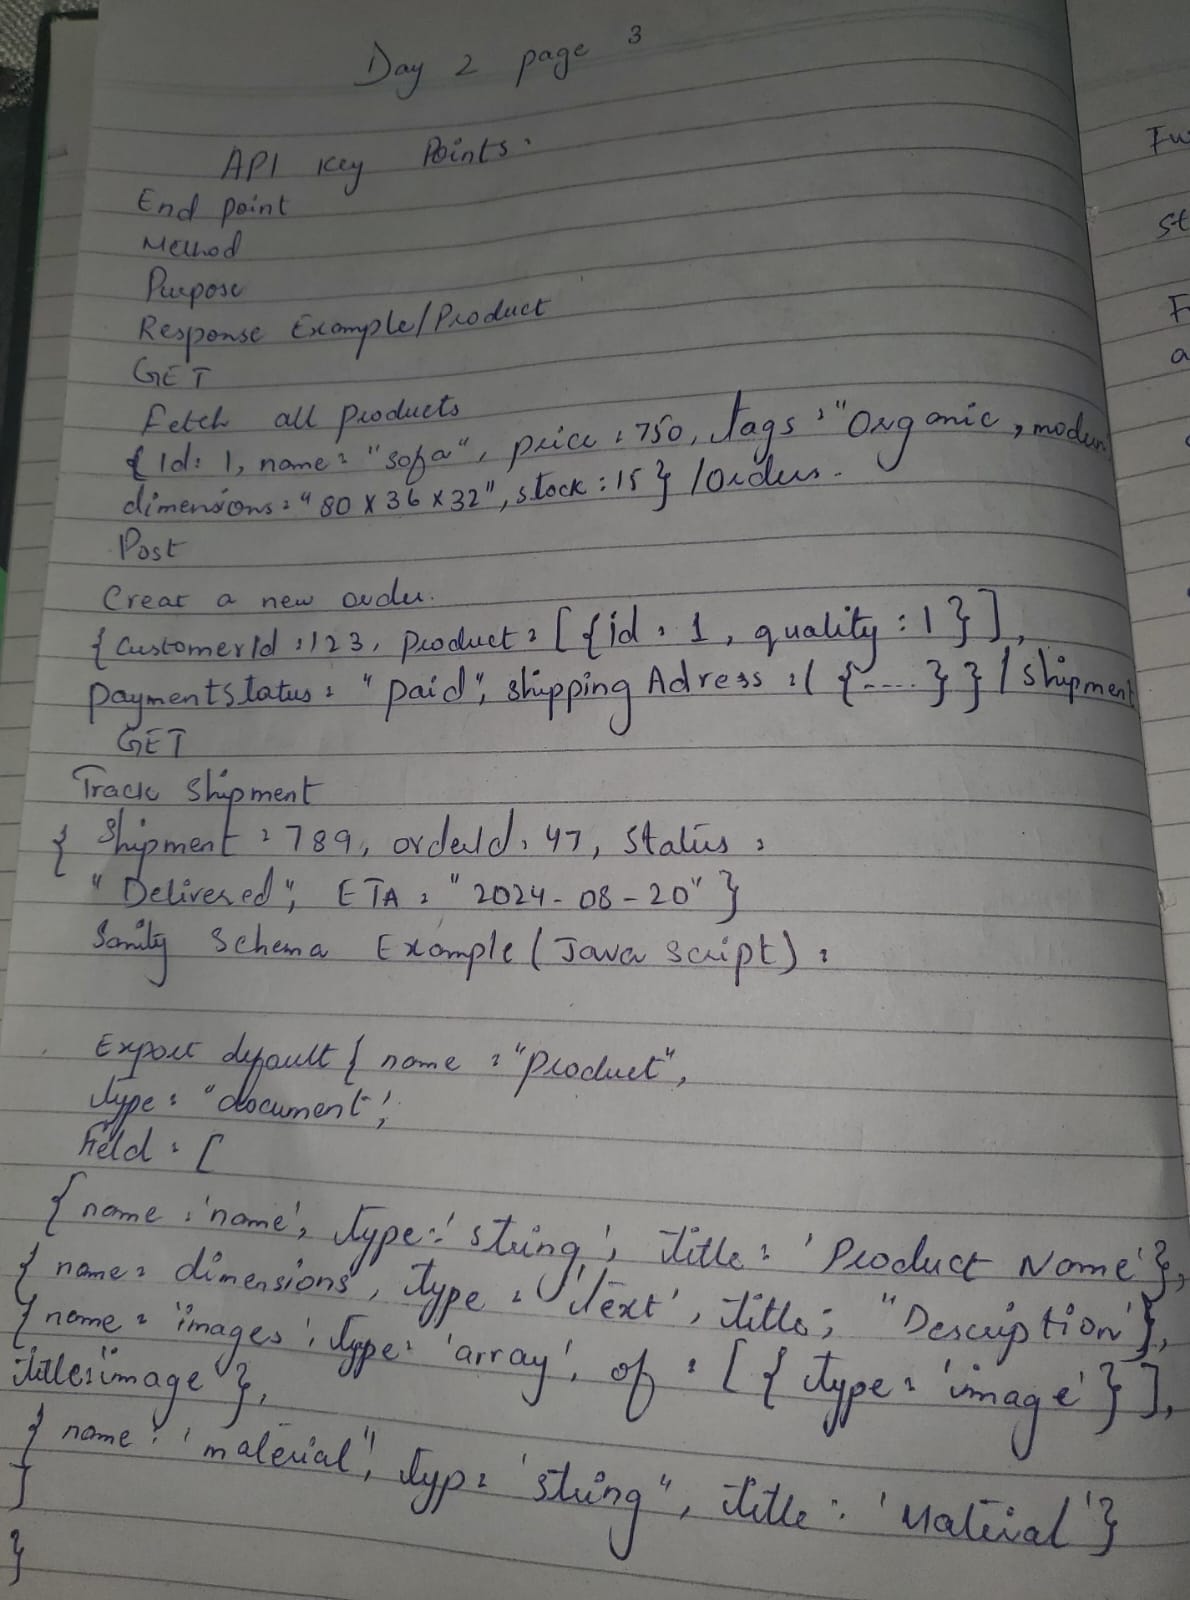 Day 2 page 3
API Key Points:
End point
Method
Purpose
Response Example/Product
GET
Fetch all products
{ Id: 1, name: "sofa", price: 750, tags: "Organic, modern
dimensions: "80 x 36 x 32", stock: 15 } /Orders.
Post
Creat a new order.
{ CustomerId: 123, Product: [ { id: 1, quality: 1 } ],
Paymentstatus: "Paid", shipping Adress: ( { .... } } / Shipment
GET
Track Shipment
{ Shipment: 789, orderId: 47, Status:
"Delivered", ETA: "2024-08-20" }
Sanity Schema Example (Java script):
Export default { name: "Product",
type: "document',
Field: [
{ name: 'name', type: 'string', title: 'Product Name' },
{ name: dimensions', type: 'Text', title; "Description'},
{ name: 'images', type: 'array', of: [ { type: 'image' } ],
title: "image" },
{ name: 'material", typ: 'string", title: 'Material' }
]
}
Fu
st
F
a